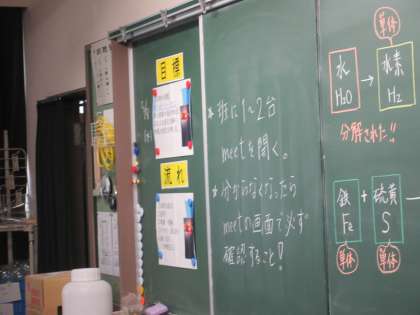 目標
流れ
*班に1~2台
meetを開く。
*分からなくなったら
meetの画面で必ず
確認すること!
単体
水 → 水素
H₂O H₂
分解された!!
鉄 + 硫黄 —
Fe S
単体 単体